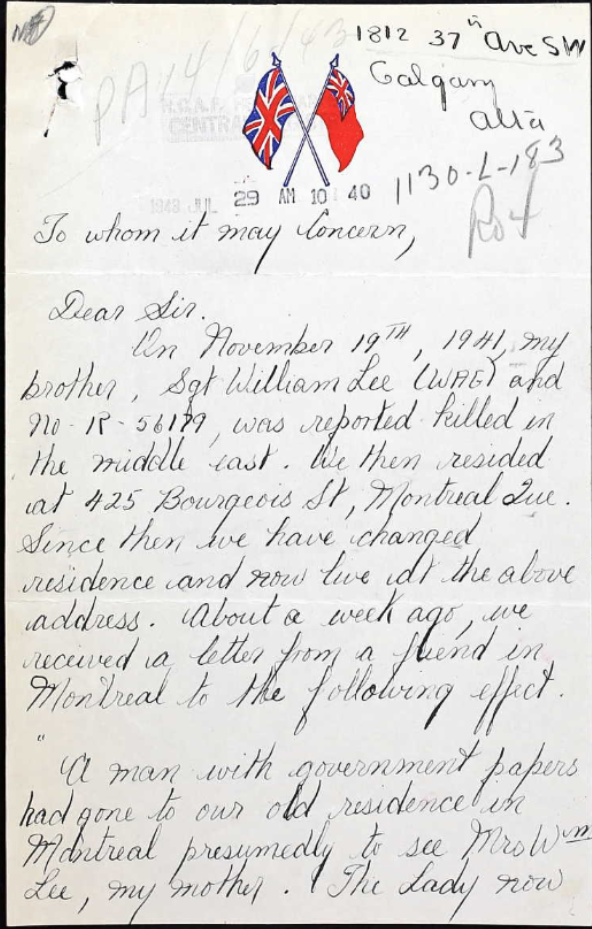 1812 37th Ave SW
Calgary
Alta
PA 14/6/43
CENTRA
1943 JUL 29 AM 10 40
1130-L-183
To whom it may Concern,
Dear Sir.
On November 19TH, 1941, my
brother, Sgt William Lee (WAG) and
No - R - 56179, was reported killed in
the middle east. We then resided
at 425 Bourgeois St, Montreal Que.
Since then we have changed
residence and now live at the above
address. About a week ago, we
received a letter from a friend in
Montreal to the following effect.
"
A man with government papers
had gone to our old residence in
Montreal presumedly to see Mrs Wm
Lee, my mother. The Lady now